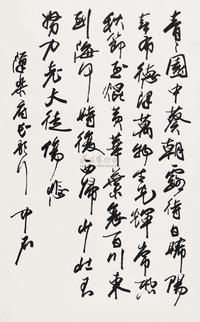 青々園中葵朝露待日晞陽
春布德澤萬物生光輝常恐
秋節至焜黃華葉衰百川東
到海何時復西歸少壯不
努力老大徒傷悲
漢樂府長歌行 中石